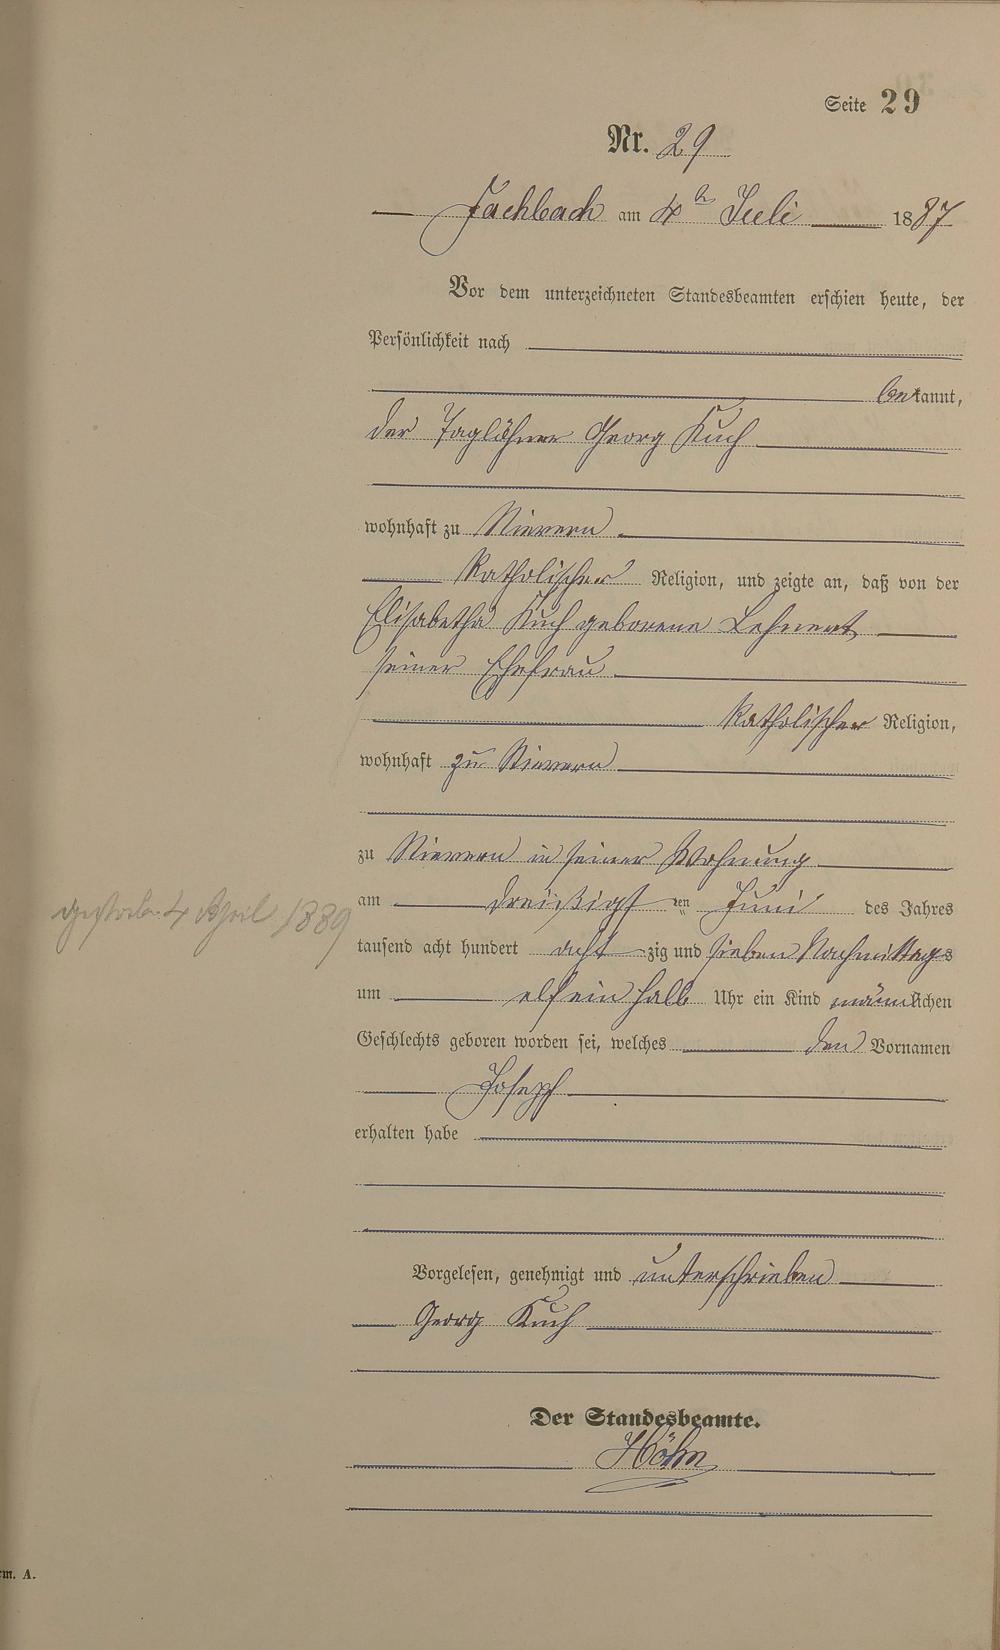 Seite 29
Nr. 29
Fachbach am 4ten Juli 1887
Vor dem unterzeichneten Standesbeamten erschien heute, der
Persönlichkeit nach
bekannt,
der Taglöhner Georg Kuch
wohnhaft zu Nievern
katholischer Religion, und zeigte an, daß von der
Elisabetha Kuch geborene Lehnert
seiner Ehefrau
katholischer Religion,
wohnhaft zu Nievern
zu Nievern in seiner Wohnung
am dreißigsten Juni des Jahres
tausend acht hundert achtzig und sieben Nachmittags
um elf ein halb Uhr ein Kind männlichen
Geschlechts geboren worden sei, welches den Vornamen
Joseph
erhalten habe
gestorben 4 April 1889
Vorgelesen, genehmigt und unterschrieben
Georg Kuch
Der Standesbeamte.
Höhn
rm. A.